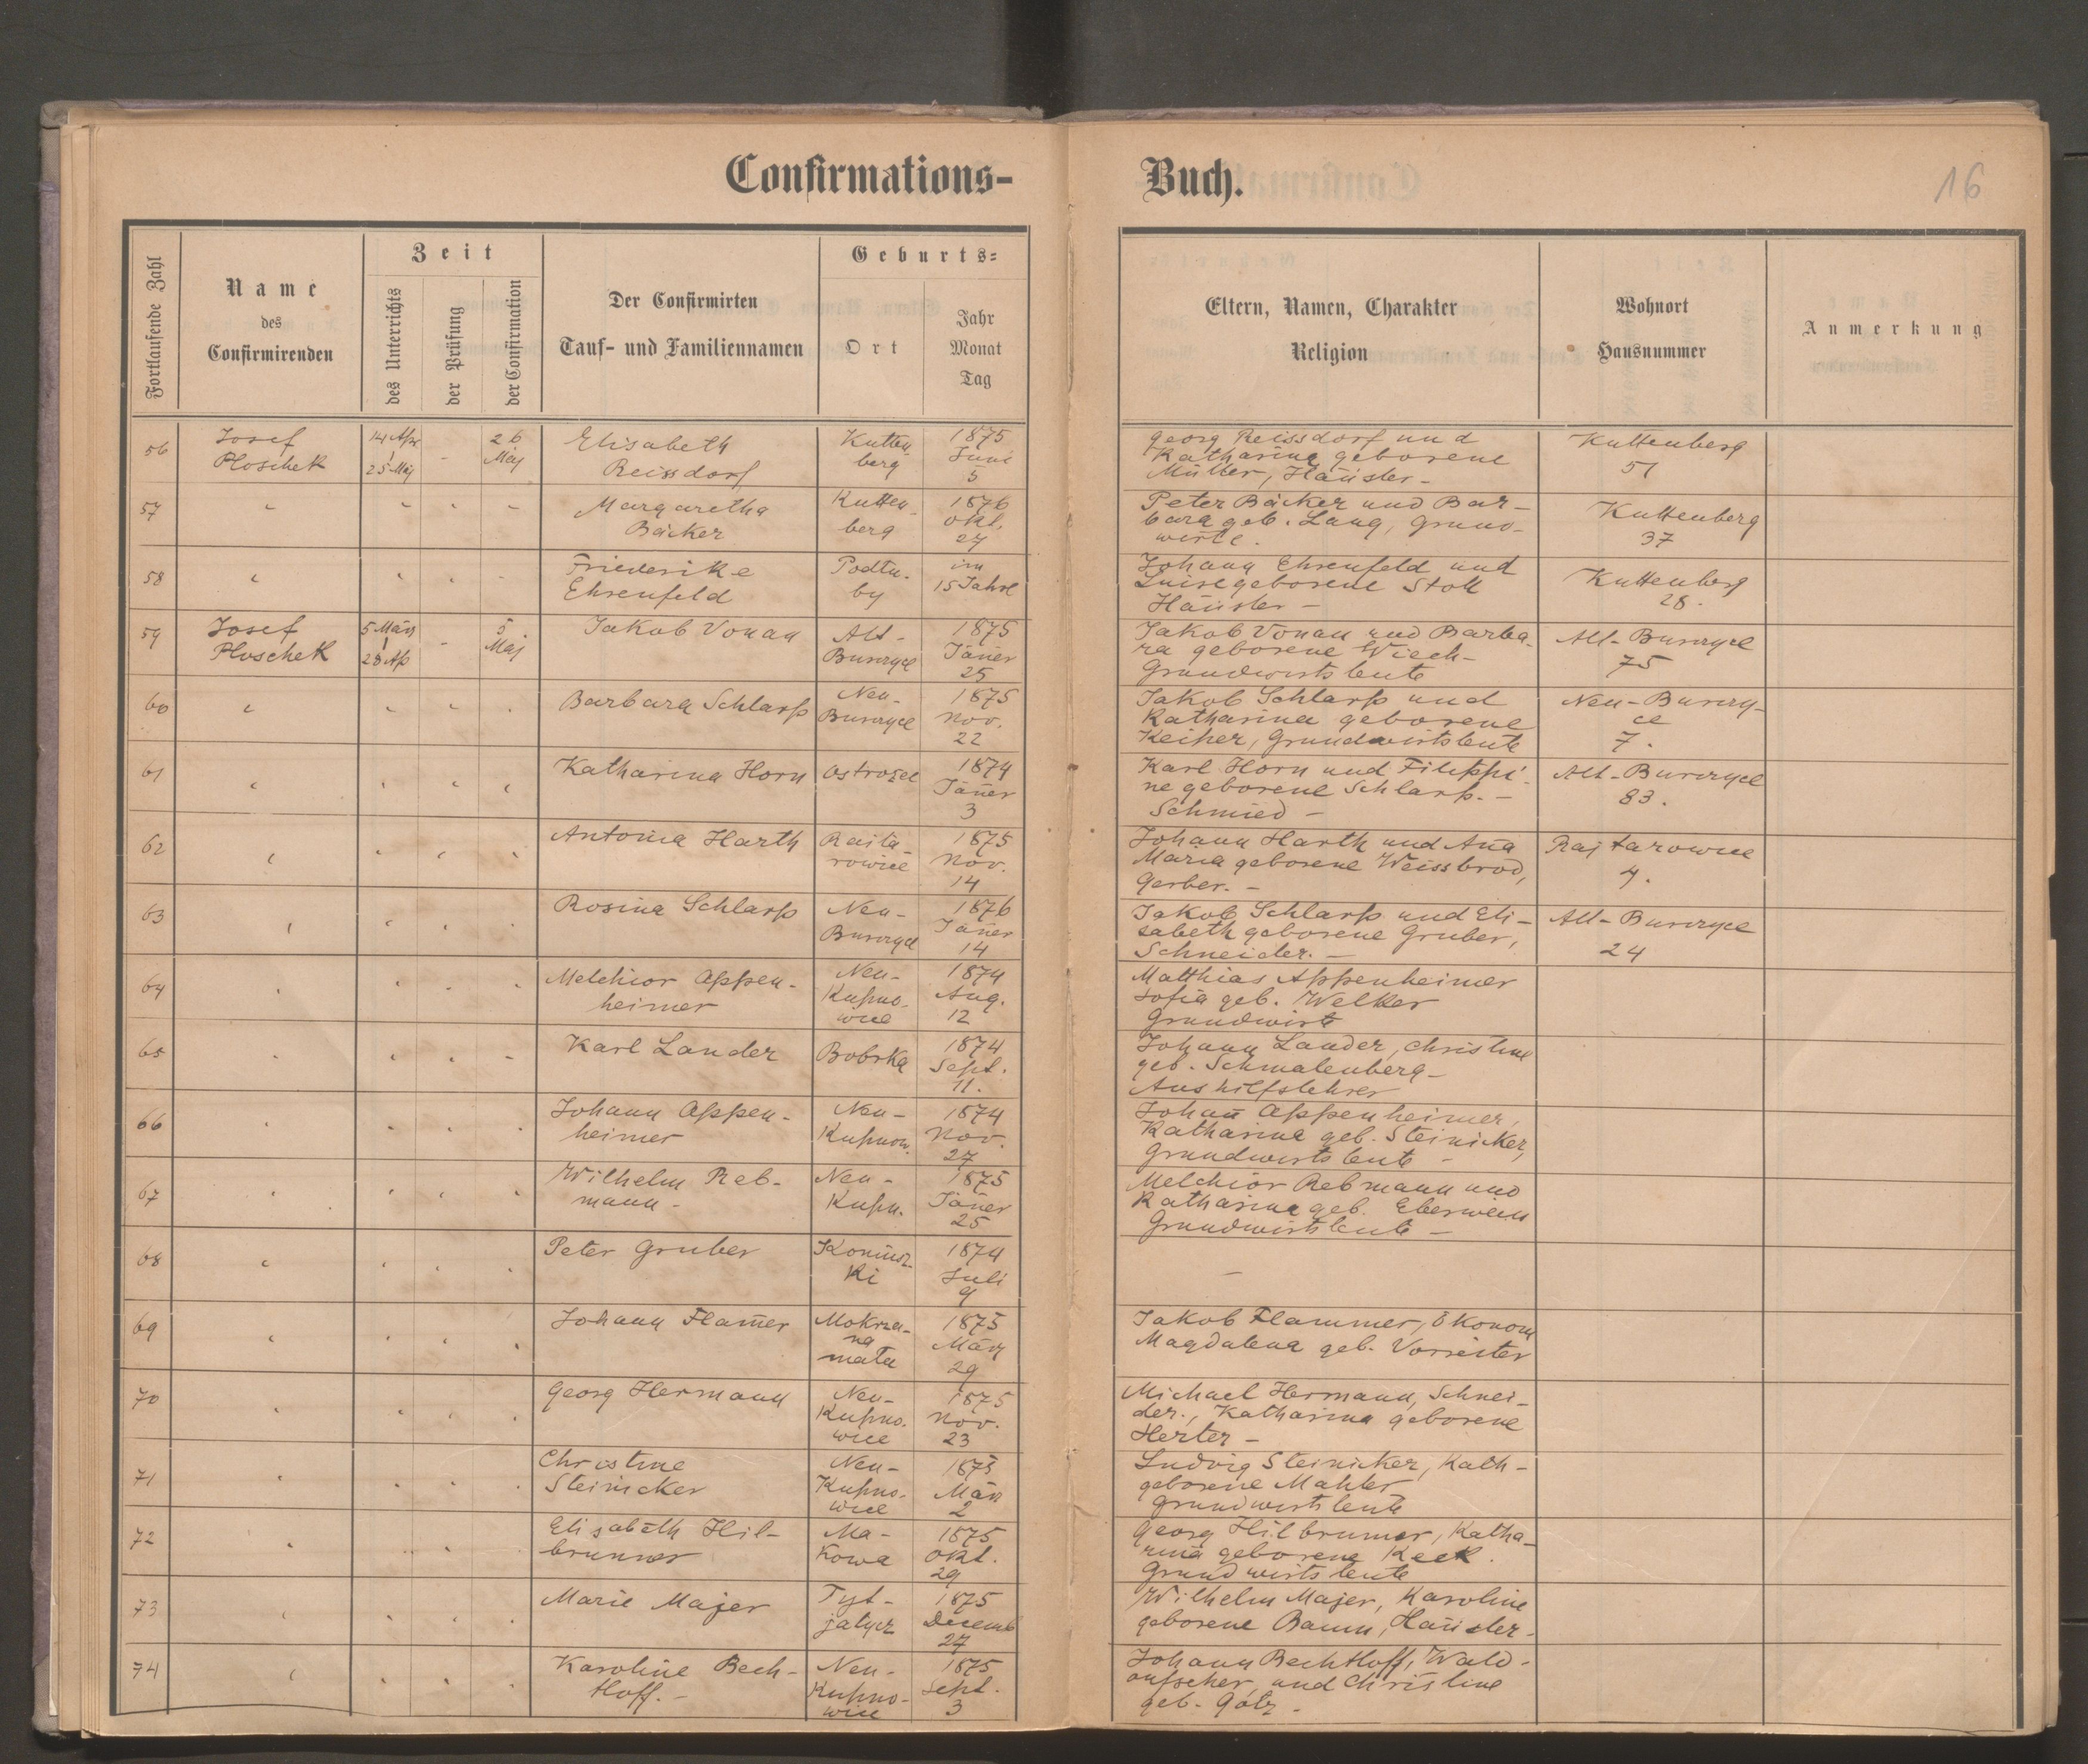 Confirmations-
Buch.
16
Fortlaufende Zahl
Name
des
Confirmirenden
Zeit
des Unterrichts
der Prüfung
der Confirmation
Der Confirmirten
Tauf- und Familiennamen
Geburts-
Ort
Jahr
Monat
Tag
Eltern, Namen, Charakter
Religion
Wohnort
Hausnummer
Anmerkung
56
Josef
Ploschek
14 Apr
25 Maj
-
26
Maj
Elisabeth
Reissdorf
Kutten
berg
1875
Juni
5
Georg Reissdorf und
Katharina geborene
Müller, Häusler -
Kuttenberg
51
57
Margaretha
Bäcker
Kutten
berg
1876
Okt.
27
Peter Bäcker und Bar-
bara geb. Lang, Grund-
wirte.
Kuttenberg
37
58
Friederike
Ehrenfeld
Podtu-
by
im
15 Jahre
Johann Ehrenfeld und
Luise geborene Stoll
Häusler -
Kuttenberg
28.
59
Josef
Ploschek
5 März
28 Ap
-
5
Maj
Jakob Vonau
Alt-
Burczyce
1875
Jäner
25
Jakob Vonau und Barba-
ra geborene Wiech-
Grundwirtsleute
Alt-Burczyce
75
60
Barbara Schlarp
Neu-
Burczyce
1875
Nov.
22
Jakob Schlarp und
Katharina geborene
Keiper, Grundwirtsleute
Neu-Burczy-
ce
7.
61
Katharina Horn
Ostrożec
1874
Jäner
3
Karl Horn und Filippi-
ne geborene Schlarp. -
Schmied -
Alt-Burczyce
83.
62
Antonia Harth
Rajta-
rowice
1875
Nov.
14
Johann Harth und Aña
Maria geborene Weissbrod,
Gerber. -
Rajtarowice
4.
63
Rosina Schlarp
Neu-
Burczyce
1876
Jäner
14
Jakob Schlarp und Eli-
sabeth geborene Gruber,
Schneider. -
Alt-Burczyce
24
64
Melchior Appen-
heimer
Neu-
Kupno-
wice
1874
Aug.
12
Matthias Appenheimer
Sofia geb. Welker
Grundwirt
65
Karl Lander
Bobrka
1874
Sept.
11.
Johann Lander, Christine
geb. Schmalenberg -
Aushilfslehrer
66
Johann Appen-
heimer
Neu-
Kupnow.
1874
Nov.
27
Johañ Appenheimer,
Katharina geb. Steinicker,
Grundwirtsleute -
67
Wilhelm Reb-
mann -
Neu-
Kupn.
1875
Jäner
25
Melchior Rebmann und
Katharina geb. Eberwein
Grundwirtsleute -
68
Peter Gruber
Koniusz-
ki
1874
Juli
9
-
69
Johann Flam̄er
Mokrza-
na
mała
1875
März
29
Jakob Flammer, Ökonom
Magdalena geb. Vorreiter
70
Georg Hermann
Neu-
Kupno-
wice
1875
Nov.
23
Michael Hermann, Schnei-
der., Katharina geborene
Herter -
71
Christine
Steinicker
Neu-
Kupno-
wice
1875
März
2
Ludvig Steinicker, Kath-
geborene Mahler
Grundwirtsleute
72
Elisabeth Hil-
brunner
Ma-
kowa
1875
Okt.
29
Georg Hilbrunner, Katha-
rina geborene Keck.
Grundwirtsleute
73
Marie Majer
Tyt-
1875
Decemb
27
Wilhelm Majer, Karoline
geborene Baum, Häusler -
74
Karoline Bech-
tloff. -
Neu-
Kupno-
wice
1875
Sept.
3
Johann Bechtloff, Wald-
aufseher und Christine
geb. Götz -